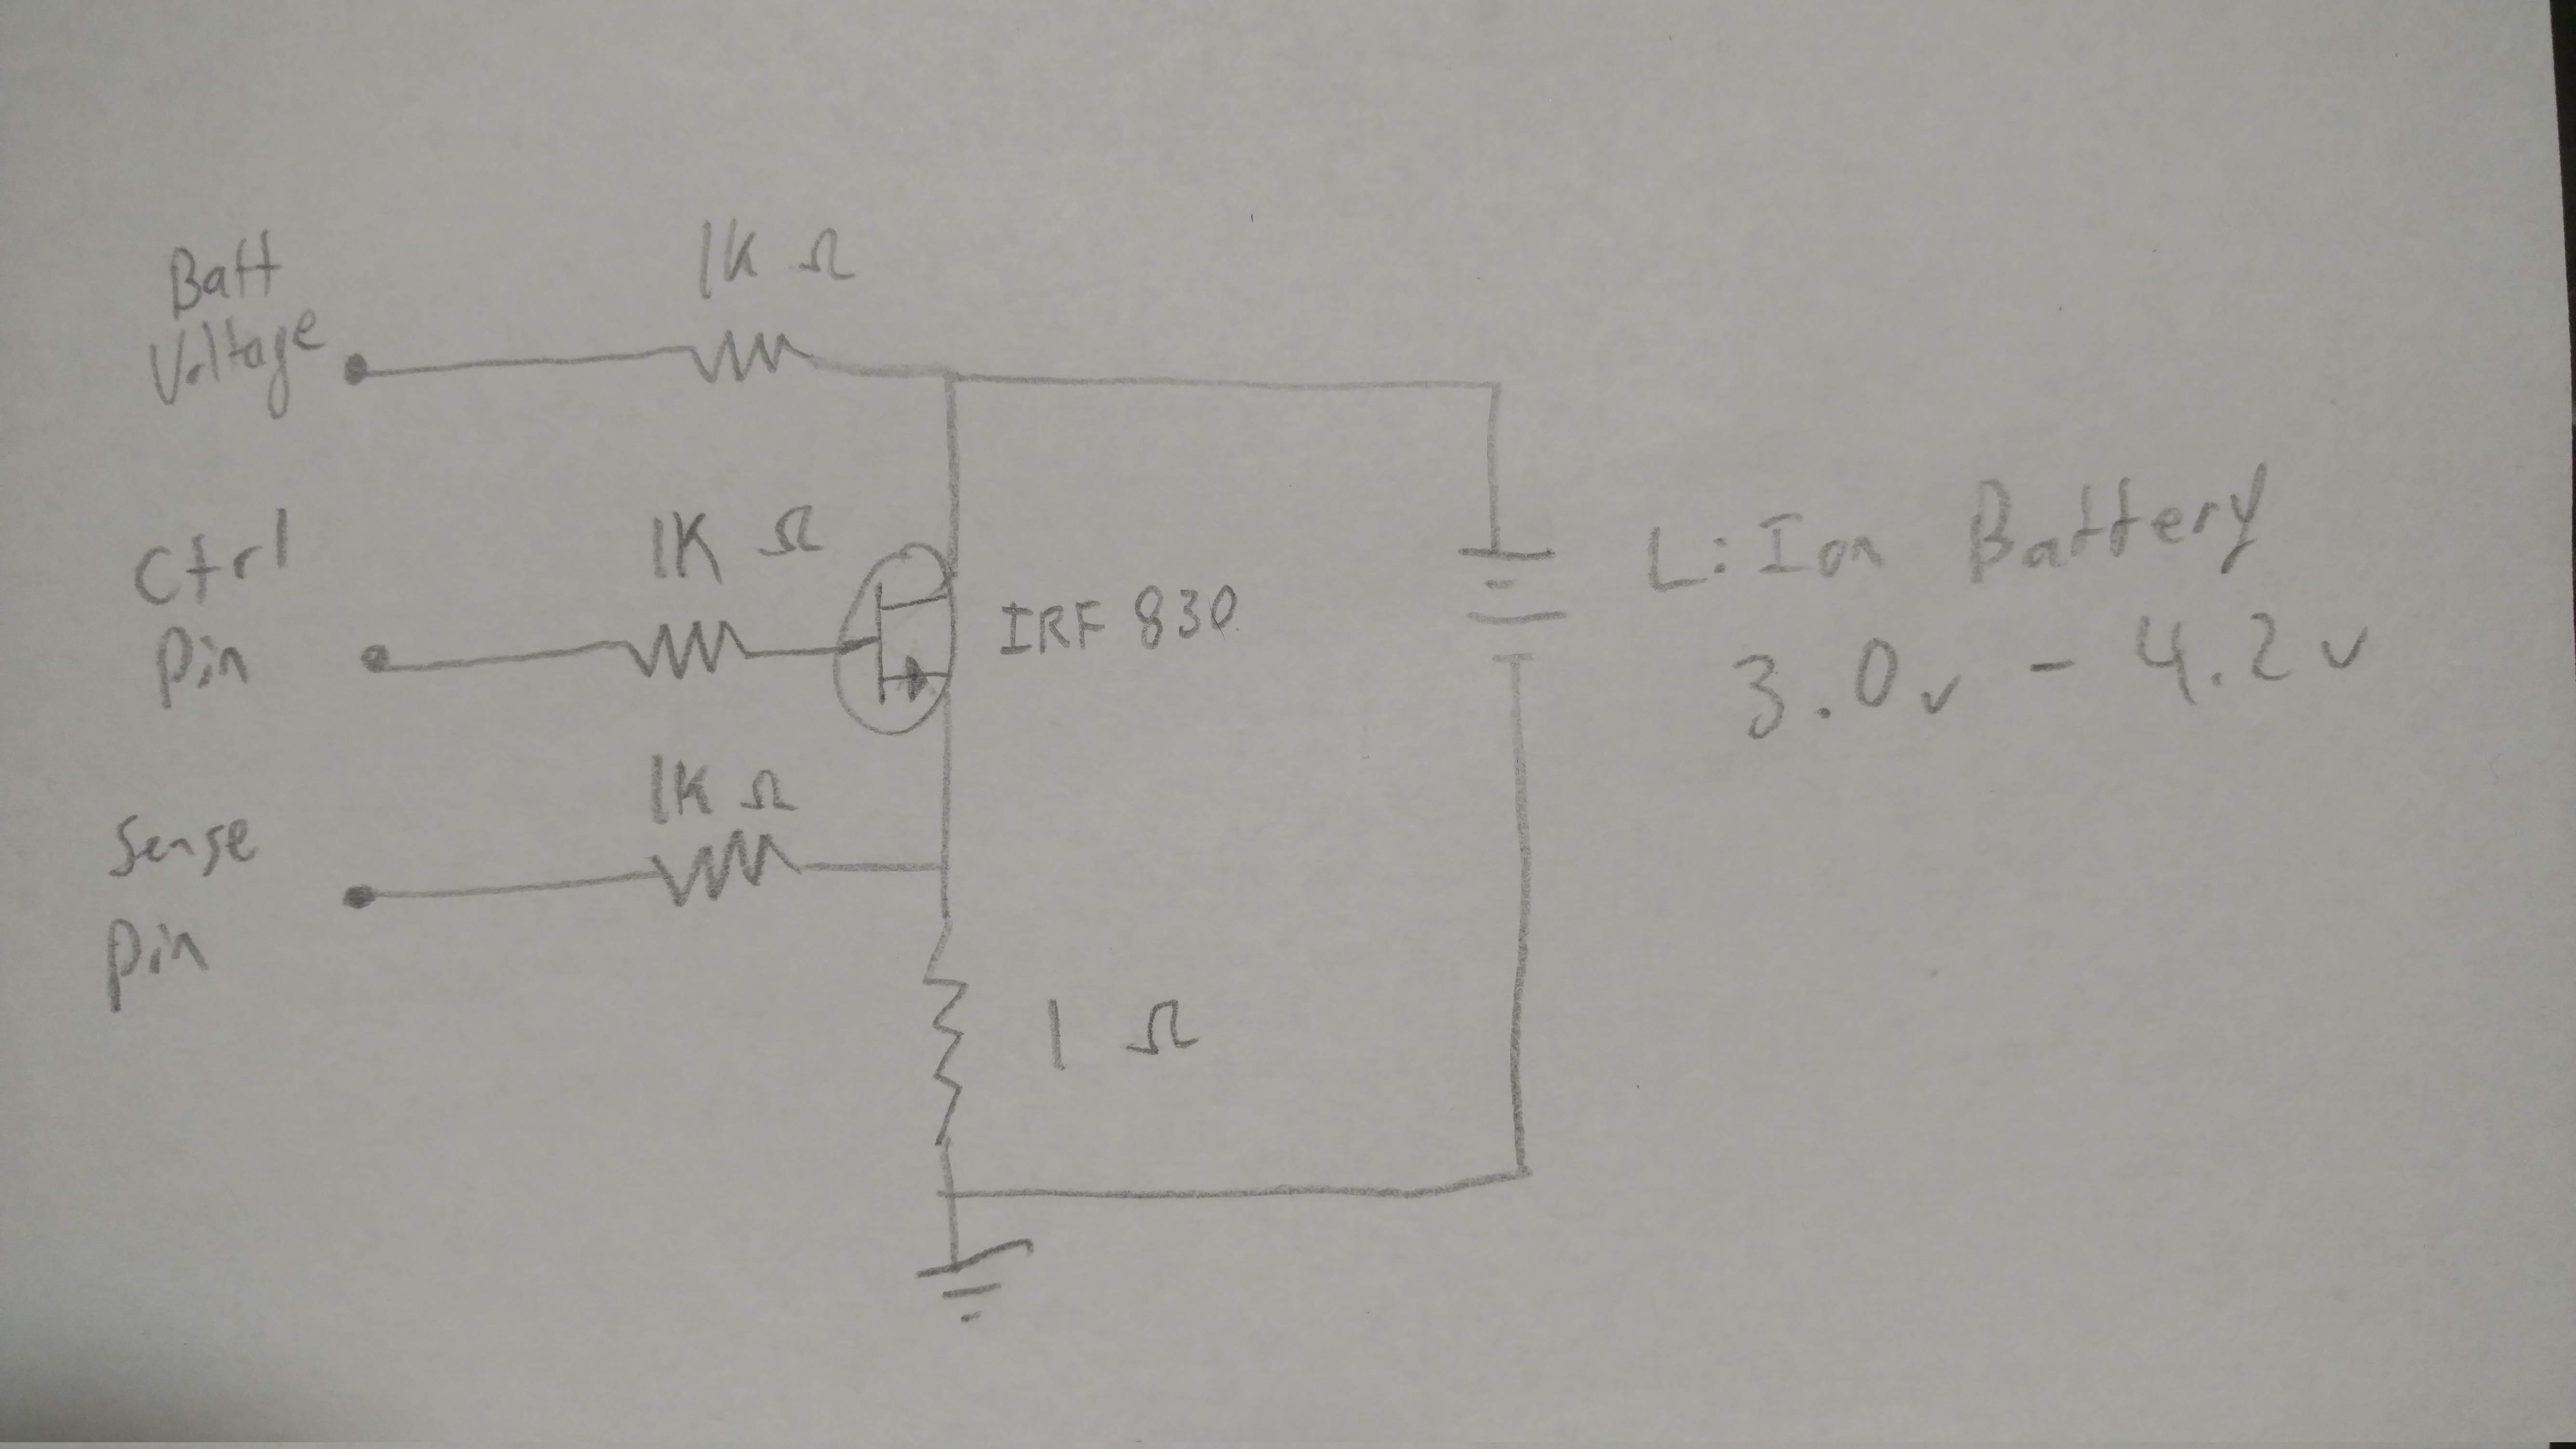 Batt
Voltage
1K Ω
Ctrl
Pin
1K Ω
IRF 830
Li Ion Battery
3.0v - 4.2v
Sense
Pin
1K Ω
1 Ω